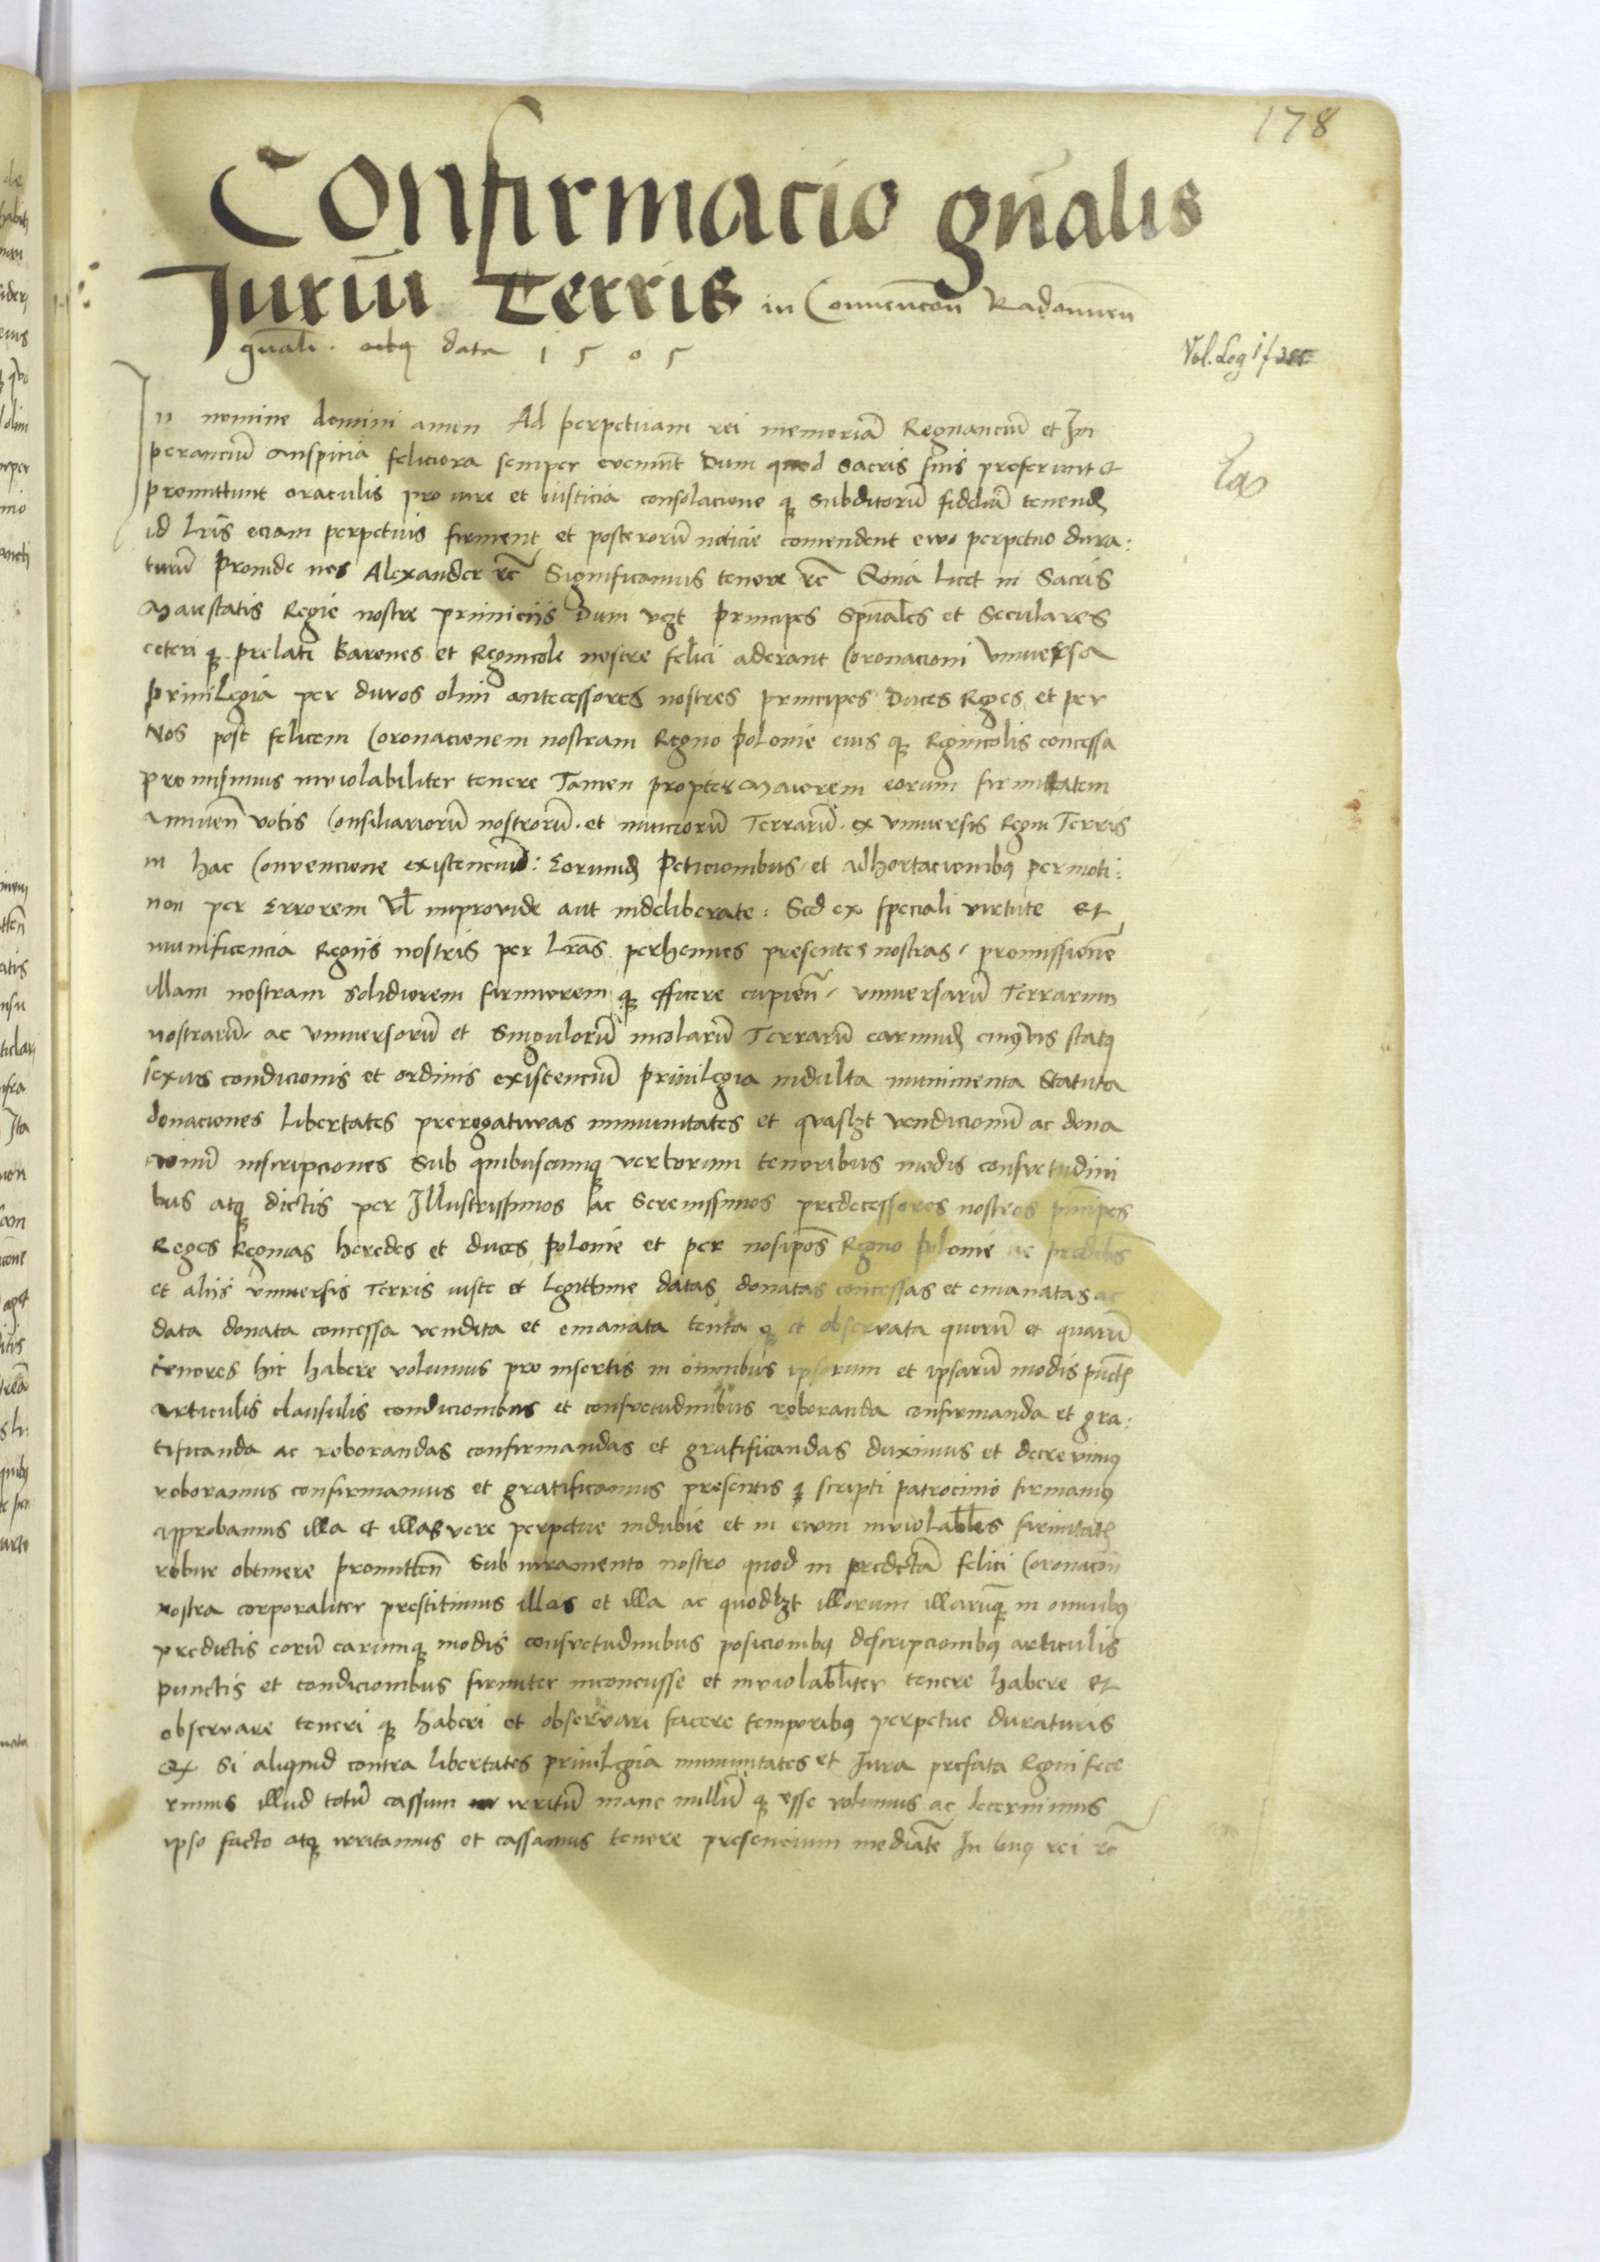 178
Confirmacio gn̄alis
Juriū Terris in Conuencōn Radomien̄
gn̄ali data 1505
Vol. Leg 1 f
In nomine domini amen Ad perpetuam rei memoriā Regnanciū et Im
peranciū Auspicia feliciora semper eveniūt Dum quod sacris suis proferunt et
promittunt oraculis pro iure et iusticia consolacione qꝫ subditorū fideliū tenendꝫ
id Lr̄is eciam perpetuis firment et posterorū noticie comendent ewo perpetuo dura:
turū Proinde nos Alexander rc̄ Significamus tenore rc̄ Qm̄a Licet in Sacris
Maiestatis Regie nostre primiciis Dum Principes Spūales et Seculares
ceteri qꝫ prelati Barones et Regnicole nostre felici aderant Coronacioni Vniuersa
Priuilegia per diuos olim antecessores nostros principes Duces Reges et per
Nos post felicem Coronacionem nostram Regno Polonie eius qꝫ Regnicolis concessa
promisimus inviolabiliter tenere Tamen propter Maiorem eorum firmitatem
Annuen̄ votis Consiliariorū nostrorū. et nuncciorū Terrarū. ex vniuersis Regni Terris
in hac Convencione existenciū: Eorundꝫ Peticionibus et adhortacionibꝫ permoti:
non per Errorem Vl̄ improvide aut indeliberate: Sed ex speciali virtute Et
munificencia Regiis nostris per Lr̄as perhennes presentes nostras, promissionē
illam nostram solidiorem firmiorem qꝫ efficere cupien̄, vniuersarū Terrarum
nostrarū, ac vniuersorū et Singulorū incolarū Terrarū earundꝫ cuiusvis statꝫ
sexus condicionis et ordinis existenciū Priuilegia indulta munimenta Statuta
donaciones Libertates prerogatiuas immunitates et quaslꝫt vendicionū ac dona
cionū inscripciones Sub quibuscunqꝫ verborum tenoribus modis consvetudini
bus atqꝫ dictis per Illustrissimos ac Serenissimos predecessores nostros prīncipes
Reges Reginas heredes et duces Polonie et per nosipōs Regno Polonie ac predictis
et aliis vniuersis Terris iuste et legittime datas donatas concessas et emanatas ac
data donata concessa vendita et emanata tenta qꝫ et observata quorū et quarū
tenores hic habere volumus pro insertis in omnibus ipsorum et ipsarū modis pūctꝫ
articulis clausulis condicionibus et consvetudinibus roboranda confirmanda et gra:
tificanda ac roborandas confirmandas et gratificandas duximus et decrevimꝫ
roboramus confirmamus et gratificamus presentis qꝫ scripti patrocinio firmamꝫ
approbamus illa et illas vere perpetue indubie et in evum inviolabl̄es firmitatꝫ
robur obtinere promitten̄ Sub iuramento nostro quod in predictā felici Coronacōn
nostra corporaliter prestitimus illas et illa ac quodlꝫt illorum illarūqꝫ in omnibꝫ
predictis eorū earumqꝫ modis consvetudinibus posicionibꝫ descripcionibꝫ articulis
punctis et condicionibus firmiter inconcusse et inviolabl̄iter tenere habere Et
observare teneri qꝫ haberi et observari facere temporibꝫ perpetue duraturis
Et Si aliquid contra libertates priuilegia immunitates et Jura prefata Regni fece
rimus illud totū cassum irritū mane nullū qꝫ esse volumus ac decernimus
ipso facto atqꝫ irritamus et cassamus tenore presencium mediāte In huiꝫ rei rc̄